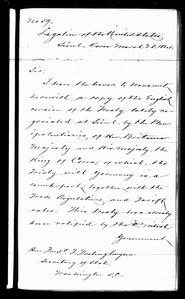 No 59.
Legation of the United States,
Seoul Corea March
Sir:
I have the honor to transmit
herewith, a copy of the English
version of the Treaty lately ne-
gotiated at Seoul, by the Pleni-
potentiaries, of her Britannic
Majesty and His Majesty the
King of Corea of which, the
Treaty with Germany is a
counterpart; together with the
Trade Regulations, and Tariff
rates. This Treaty has already
been ratified by the
Government
Hon. Fred'k T. Frelinghuysen
Secretary of State
Washington D.C.